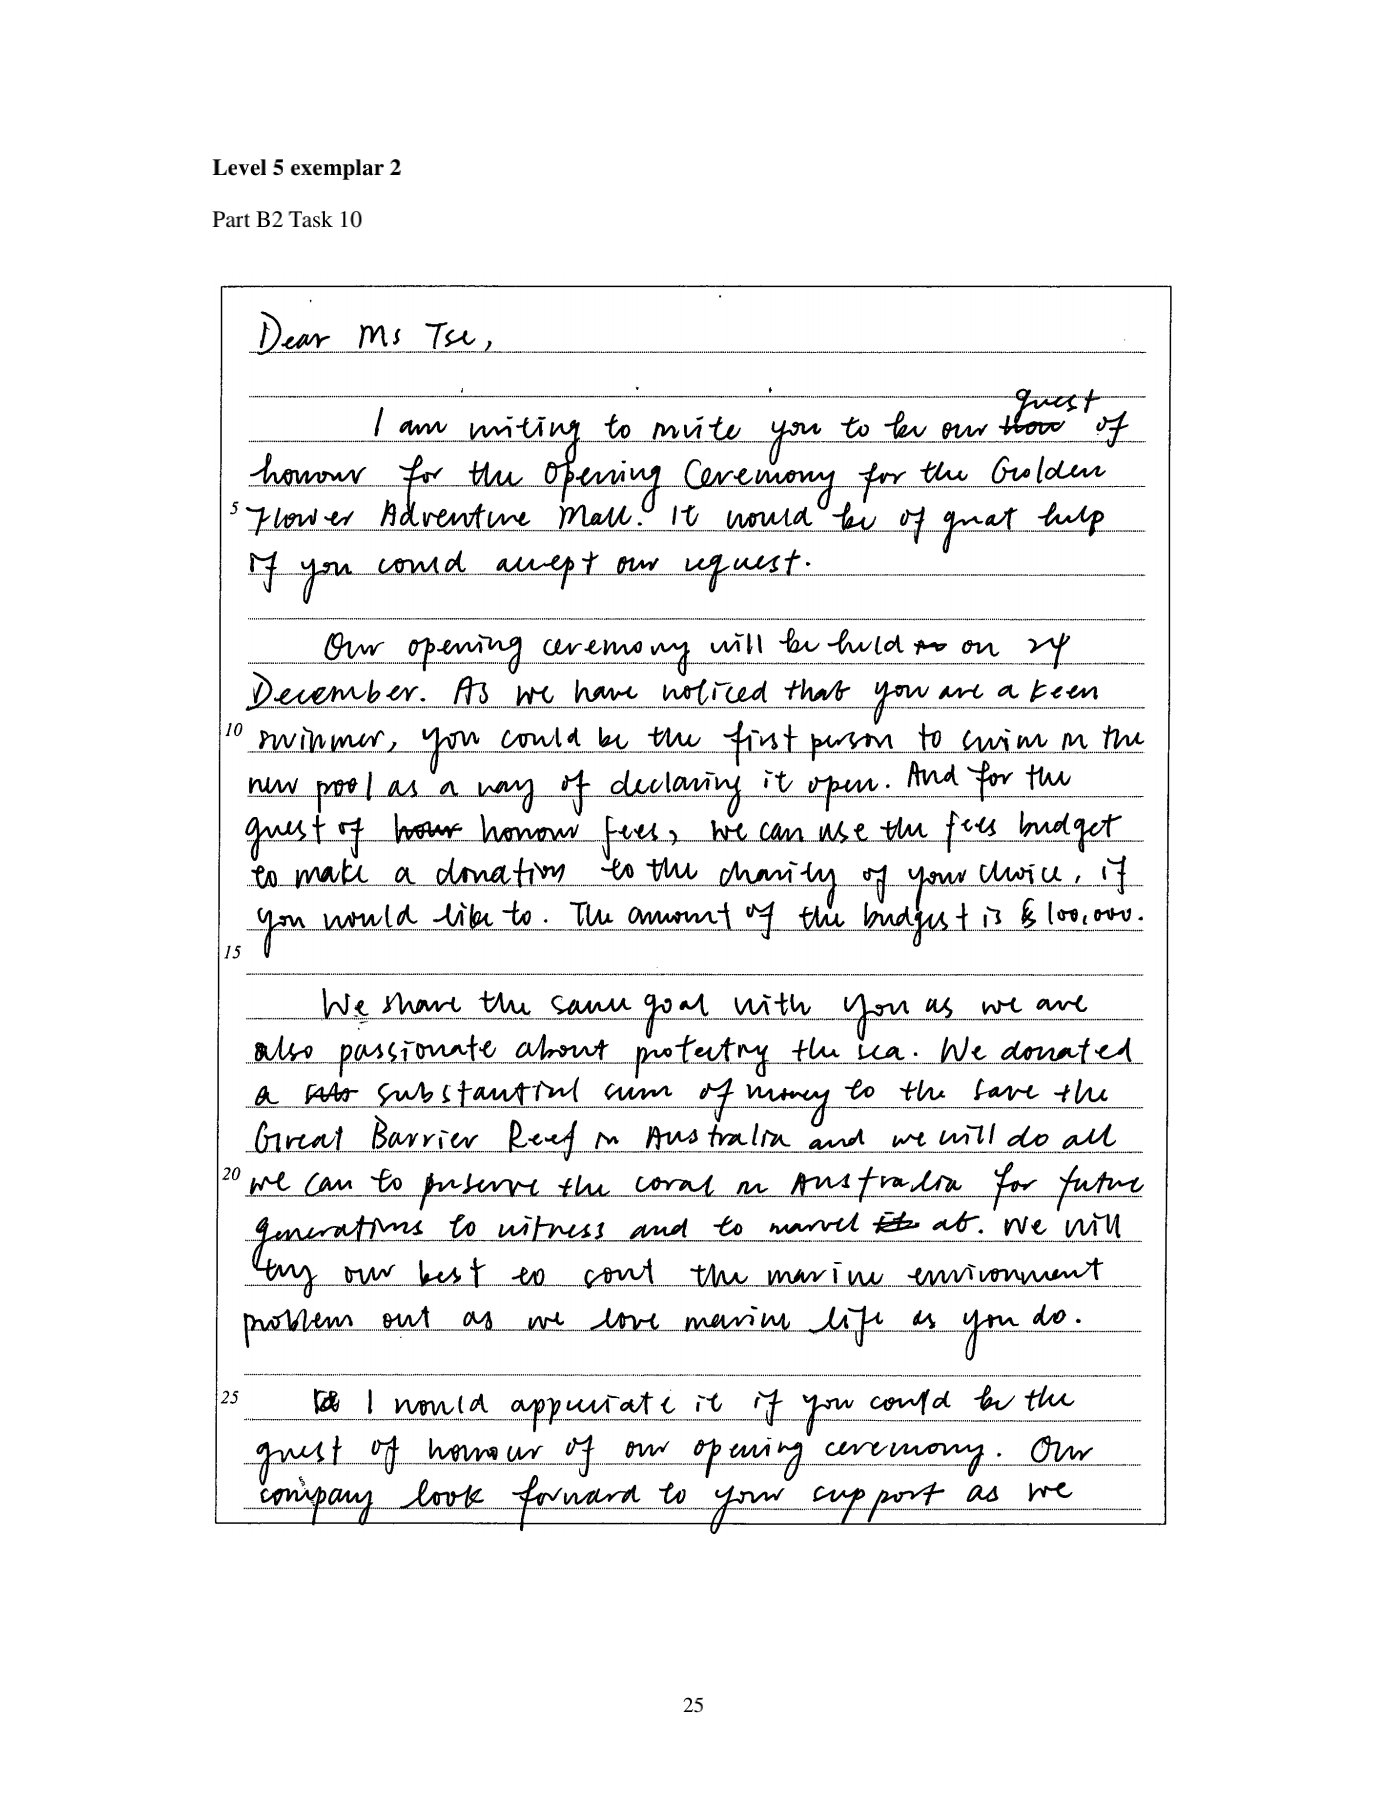 Level 5 exemplar 2
Part B2 Task 10
Dear Ms Tse,
guest
I am writing to invite you to be our of
honour for the Opening Ceremony for the Golden
5 Flower Adventure Mall. It would be of great help
if you could accept our request.
Our opening ceremony will be held on 24
December. As we have noticed that you are a keen
10 swimmer, you could be the first person to swim in the
new pool as a way of declaring it open. And for the
guest of honour fees, we can use the fees budget
to make a donation to the charity of your choice, if
you would like to. The amount of the budget is $100,000.
15
We share the same goal with you as we are
also passionate about protecting the sea. We donated
a substantial sum of money to the Save the
Great Barrier Reef in Australia and we will do all
20 we can to preserve the coral in Australia for future
generations to witness and to marvel at. We will
try our best to sort the marine environment
problems out as we love marine life as you do.
25 I would appreciate it if you could be the
guest of honour of our opening ceremony. Our
company look forward to your support as we
25